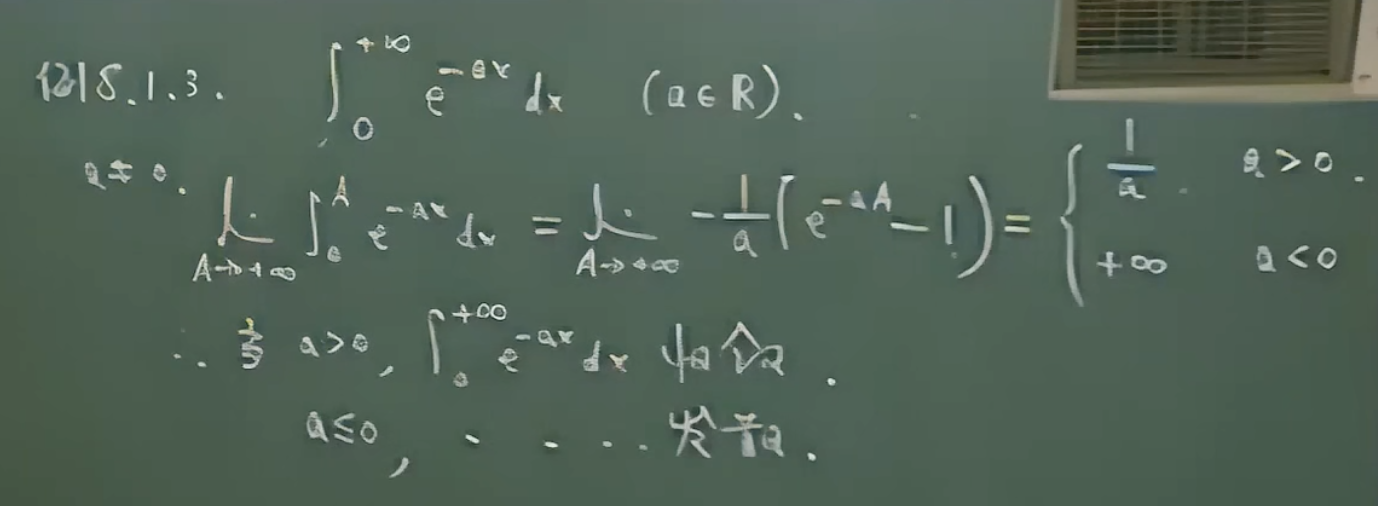 例8.1.3. ∫₀^{+∞} e^{-ax} dx (a∈R).
a≠0. lim_{A→+∞} ∫₀^A e^{-ax} dx = lim_{A→+∞} -1/a (e^{-aA} - 1) = { 1/a a>0. +∞ a<0
∴ 当 a>0, ∫₀^{+∞} e^{-ax} dx 收敛.
a≤0, ‥‥ 发散.